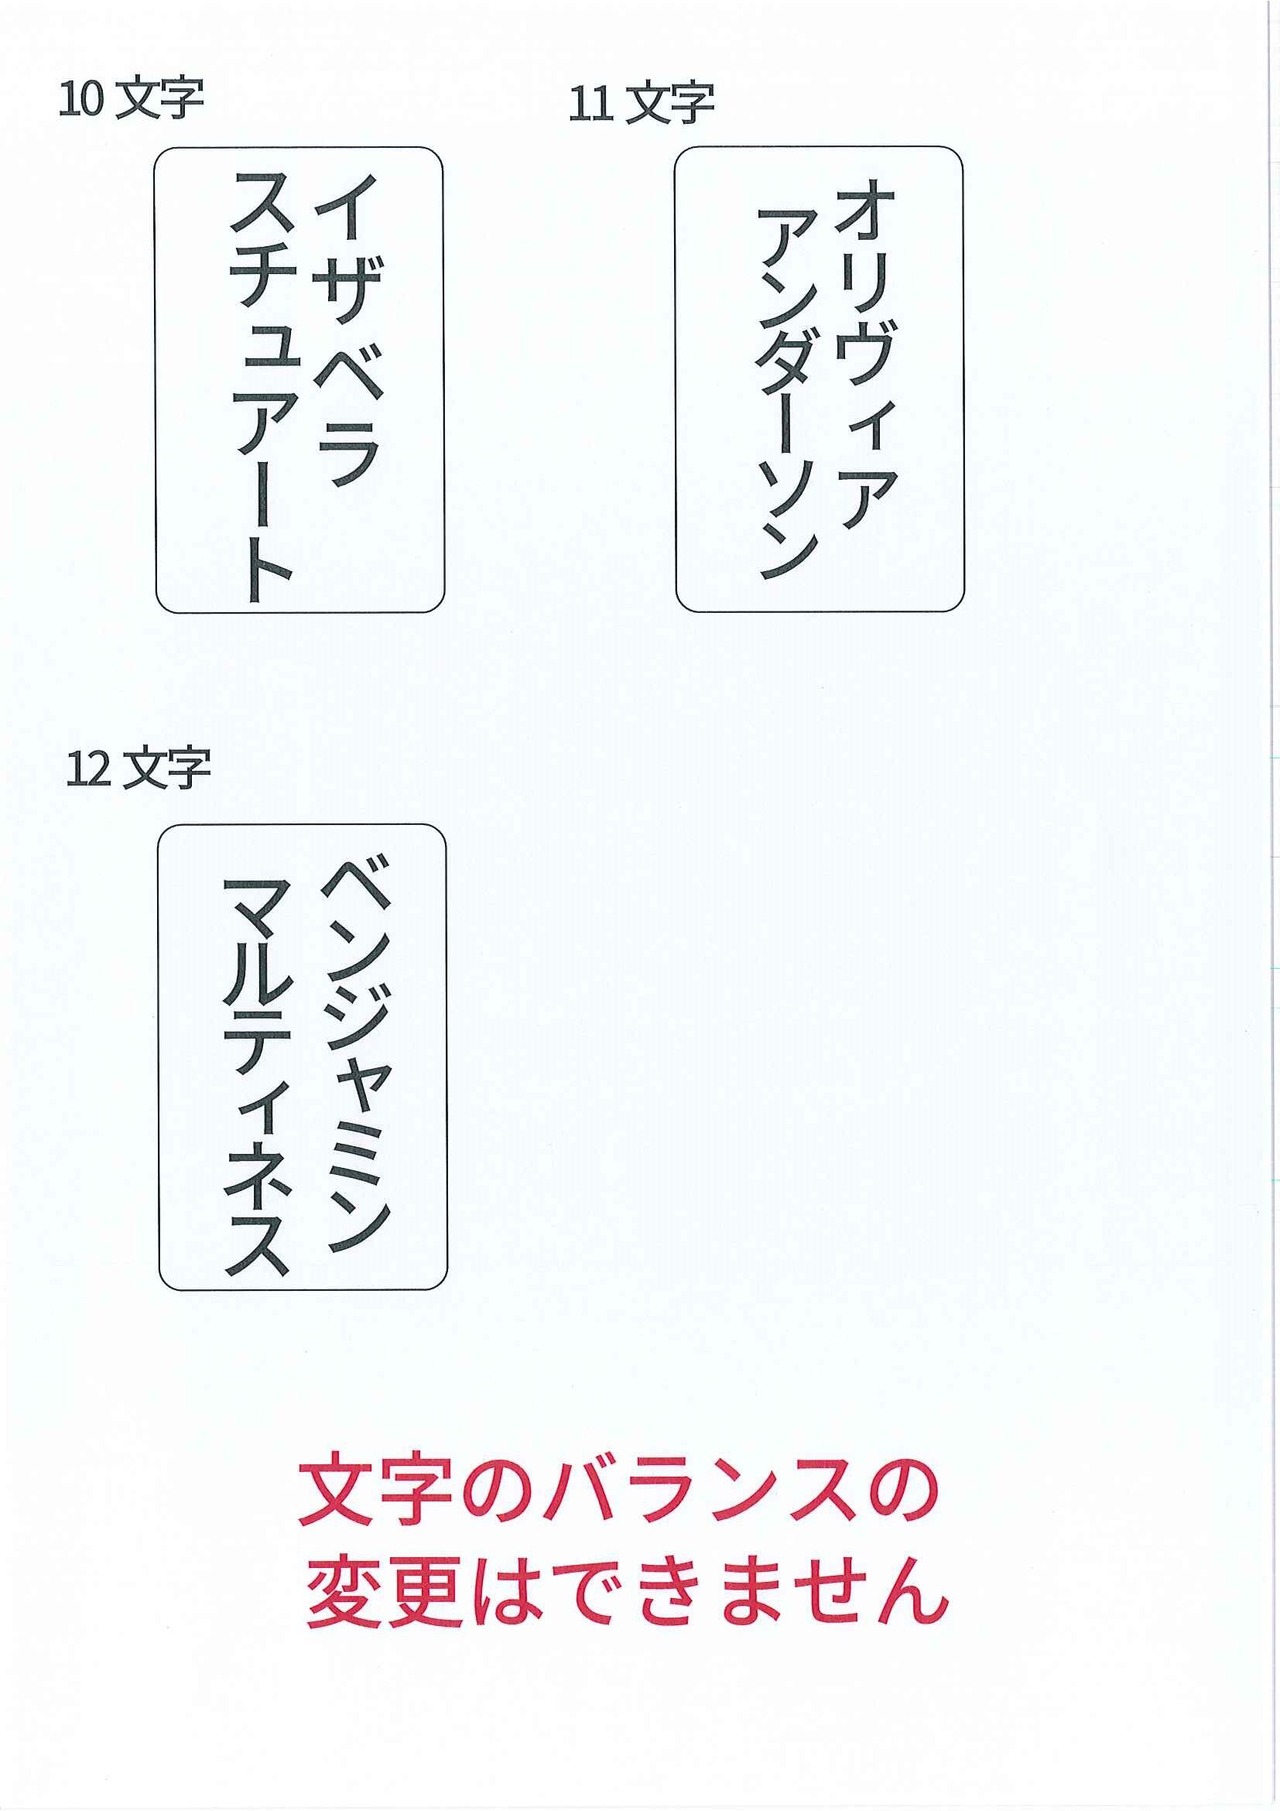 10 文字
イザベラ
スチュアート
11 文字
オリヴィア
アンダーソン
12 文字
ベンジャミン
マルティネス
文字のバランスの
変更はできません